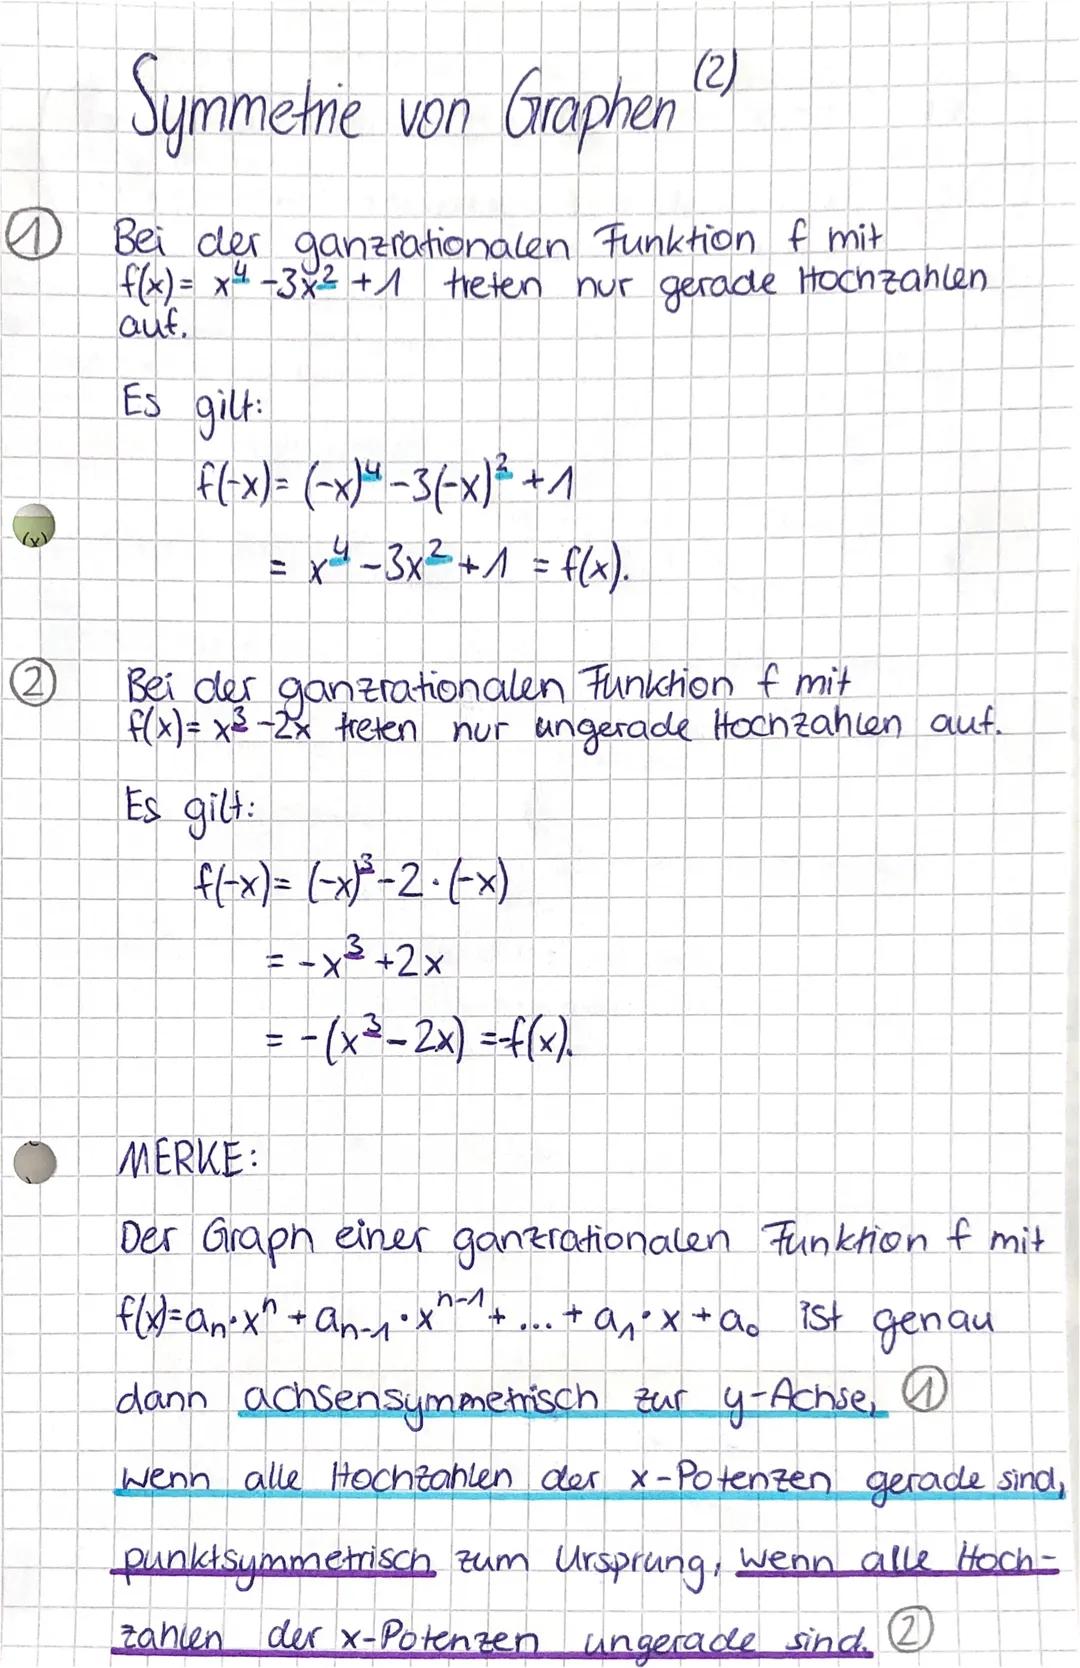 Symmetrie von Graphen (2)
① Bei der ganzrationalen Funktion f mit
f(x) = x⁴ -3x² +1 treten nur gerade Hochzahlen
auf.
Es gilt:
f(-x) = (-x)⁴ -3(-x)² +1
= x⁴ -3x² +1 = f(x).
(x)
② Bei der ganzrationalen Funktion f mit
f(x) = x³ -2x treten nur ungerade Hochzahlen auf.
Es gilt:
f(-x) = (-x)³ -2·(-x)
= -x³ +2x
= -(x³ -2x) = -f(x).
MERKE:
Der Graph einer ganzrationalen Funktion f mit
f(x)=aₙ·xⁿ + aₙ₋₁·xⁿ⁻¹ + ... + a₁·x + a₀ ist genau
dann achsensymmetrisch zur y-Achse, ①
wenn alle Hochzahlen der x-Potenzen gerade sind,
punktsymmetrisch zum Ursprung, wenn alle Hoch-
zahlen der x-Potenzen ungerade sind. ②